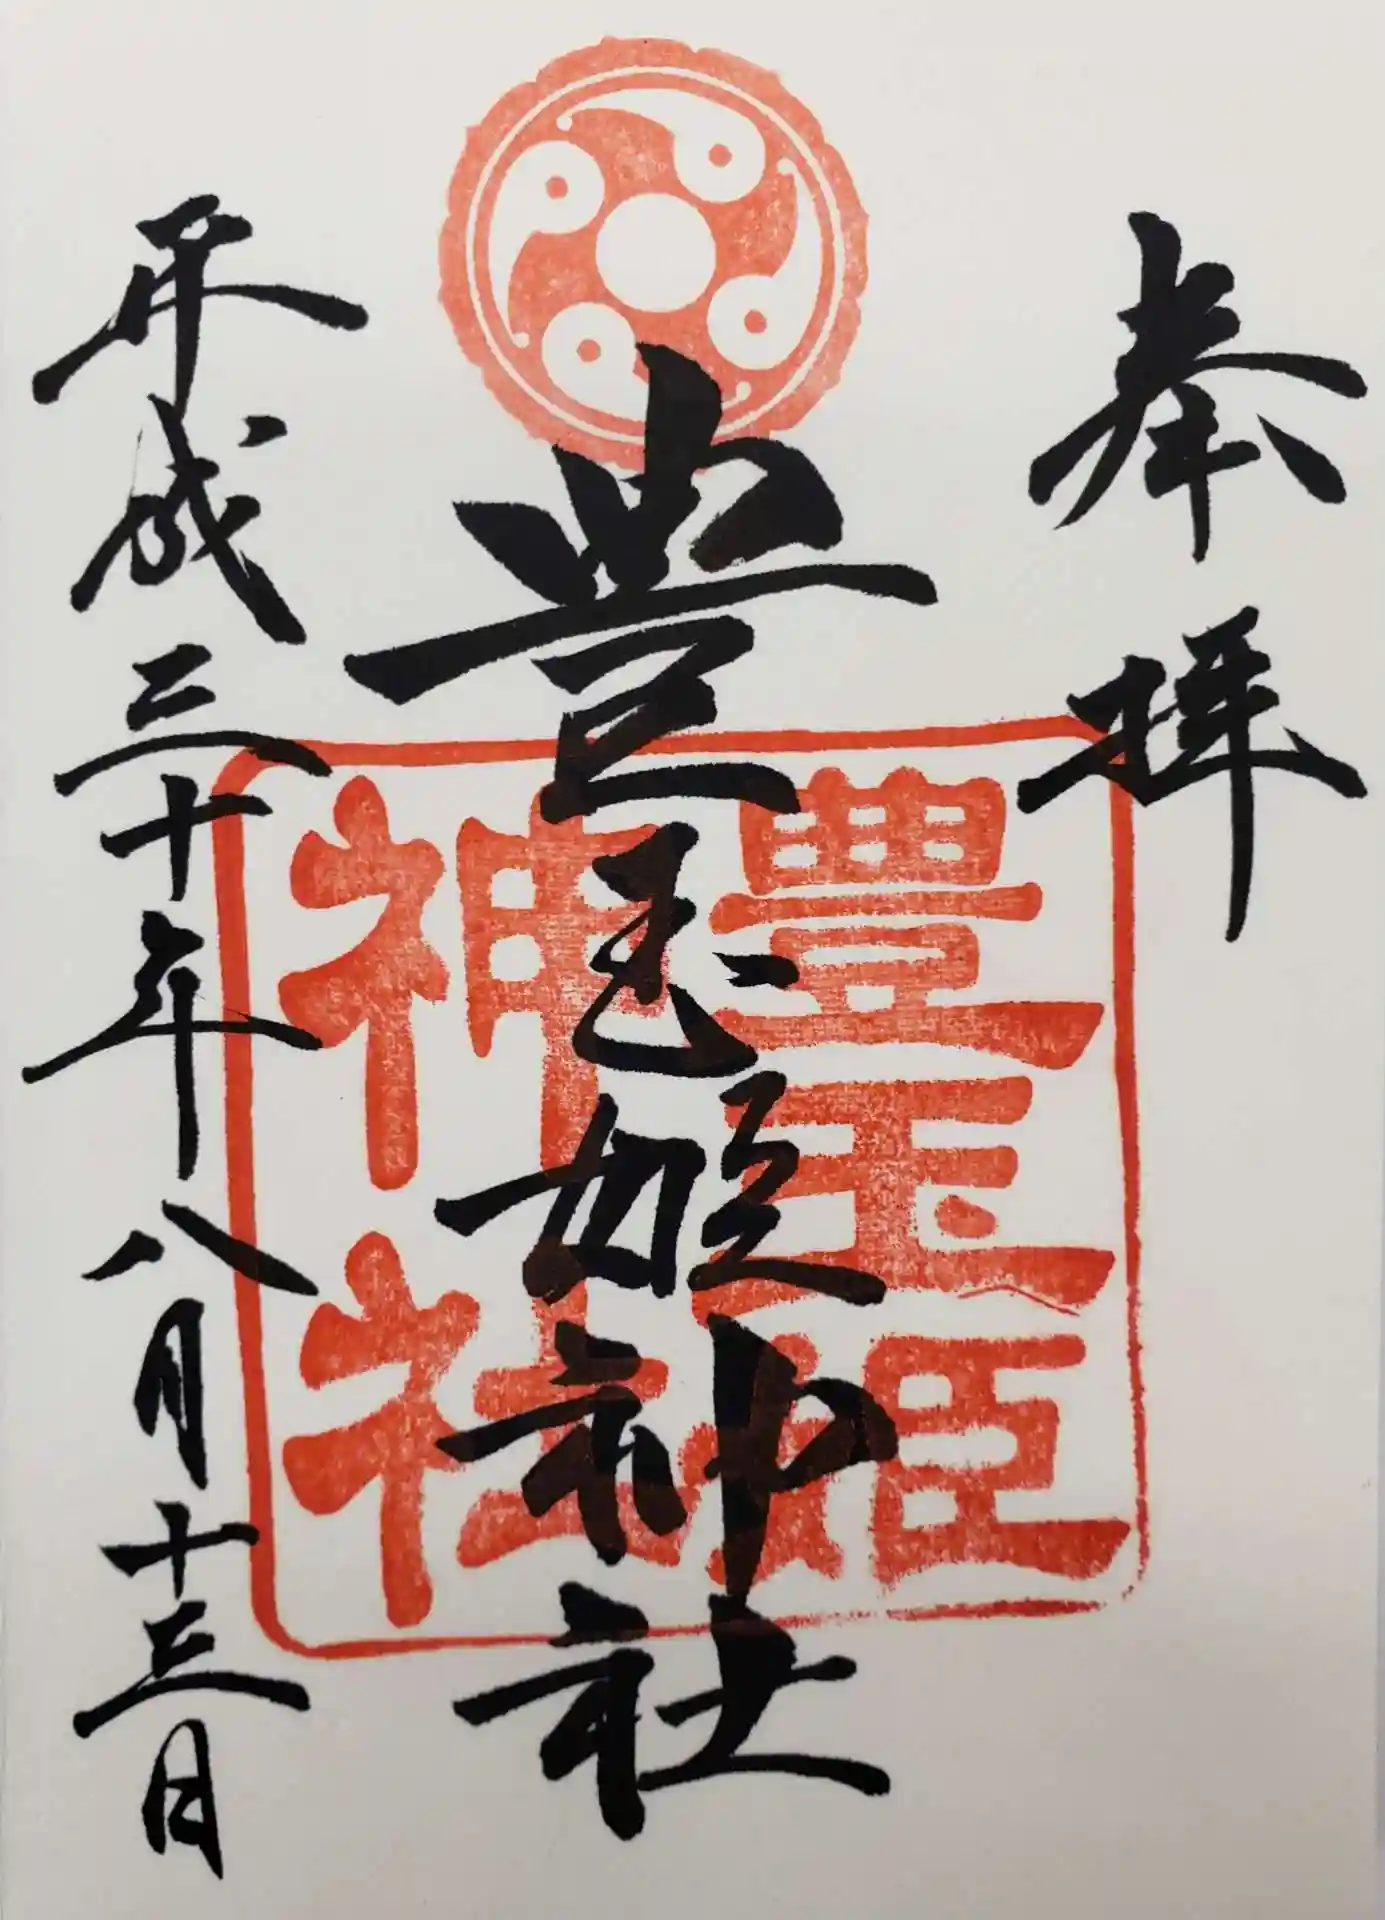 奉拝
豊玉姫神社
豊玉姫
神社
平成三十年八月十三日